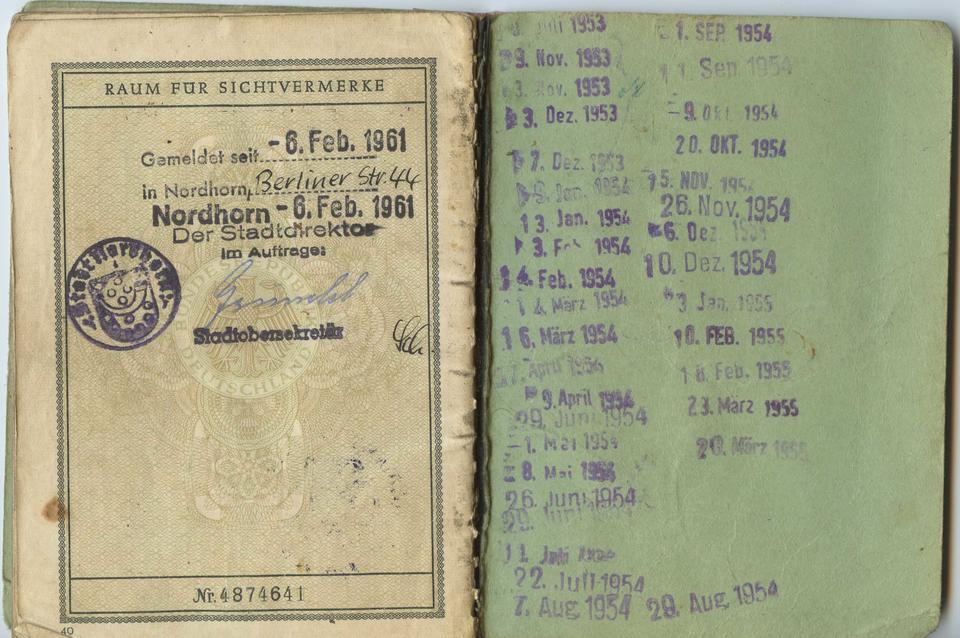 RAUM FÜR SICHTVERMERKE
Gemeldet seit - 6. Feb. 1961
in Nordhorn, Berliner Str. 44
Nordhorn - 6. Feb. 1961
Der Stadtdirektor
Im Auftrage:
Stadtobersekretär
Nr. 4874641
49
Juli 1953
9. Nov. 1953
3. Nov. 1953
3. Dez. 1953
7. Dez. 1953
Jan. 1954
13. Jan. 1954
3. Feb. 1954
4. Feb. 1954
1 4. März 1954
1 6. März 1954
7. April 1954
9. April 1954
29. Juni 1954
- 1. Mai 1954
8. Mai 1954
26. Juni 1954
29. Juni 1954
1. Juli
22. Juli 1954
7. Aug. 1954
1. SEP. 1954
1. Sep. 1954
- 9. Okt. 1954
20. OKT. 1954
15. NOV. 1954
26. Nov. 1954
6. Dez. 1954
10. Dez. 1954
3. Jan. 1955
10. FEB. 1955
18. Feb. 1955
23. März 1955
März 1955
Aug. 1954